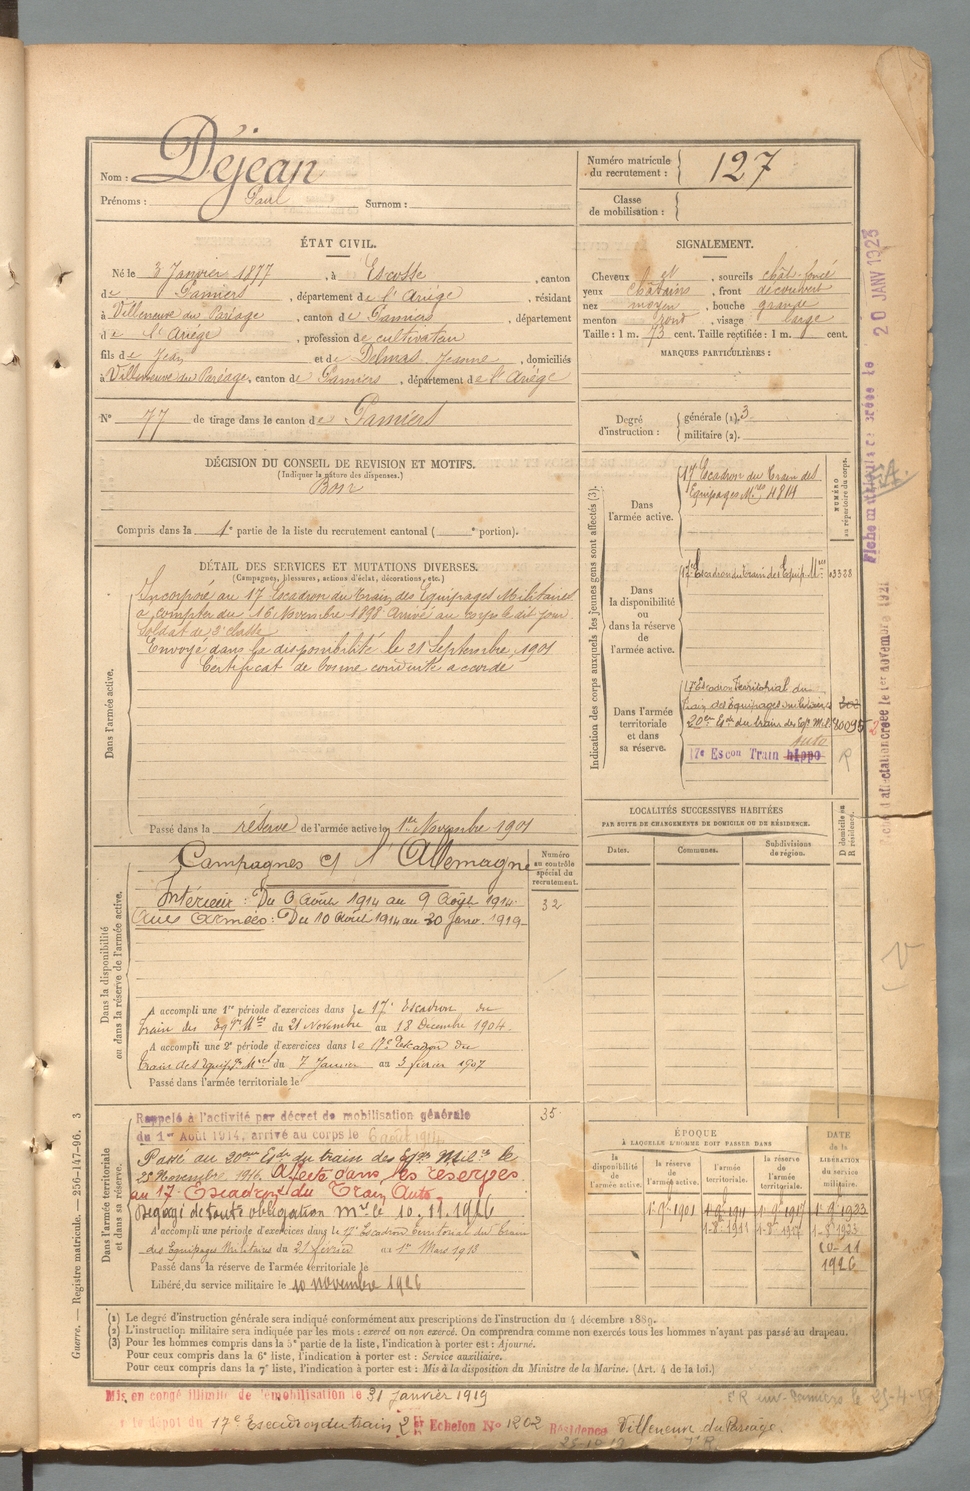 Nom : Déjean
Prénoms : Paul Surnom :
Numéro matricule du recrutement : 127
Classe de mobilisation :
ÉTAT CIVIL.
Né le 3 Janvier 1877, à Escosse, canton
de Pamiers, département de l'Ariége, résidant
à Villeneuve du Paréage, canton de Pamiers, département
de l'Ariége, profession de cultivateur
fils de Jean et de Delmas Jeanne, domiciliés
à Villeneuve du Paréage, canton de Pamiers, département de l'Ariége
SIGNALEMENT.
Cheveux et, sourcils chât-foncé
yeux châtains, front découvert
nez moyen, bouche grande
menton rond, visage large
Taille : 1 m. 73 cent. Taille rectifiée : 1 m. cent.
MARQUES PARTICULIÈRES :
N° 77 de tirage dans le canton de Pamiers
Degré d'instruction : générale (1). 3
militaire (2).
DÉCISION DU CONSEIL DE REVISION ET MOTIFS.
(Indiquer la nature des dispenses.)
Bon
Compris dans la 1e partie de la liste du recrutement cantonal ( e portion).
DÉTAIL DES SERVICES ET MUTATIONS DIVERSES.
(Campagnes, blessures, actions d'éclat, décorations, etc.)
Dans l'armée active.
Incorporé au 17 Escadron du Train des Équipages Militaires
à compter du 16 Novembre 1898 Arrivé au corps le dit jour
Soldat de 2e classe
Envoyé dans la disponibilité le 21 Septembre 1901
Certificat de bonne conduite accordé
Passé dans la réserve de l'armée active le 1er Novembre 1901
Indication des corps auxquels les jeunes gens sont affectés (3).
NUMÉRO au répertoire du corps.
Dans l'armée active.
17 Escadron du Train des
Equipages Mres 4814
Dans la disponibilité ou dans la réserve de l'armée active.
17 Escadron du Train des Equip. Mres 03328
Dans l'armée territoriale et dans sa réserve.
17 Escadron Territorial du
Train des Equipages militaires
20em Esc du train des Eqp Mil 80095
Auto R
17e Escon Train hippo
Dans la disponibilité ou dans la réserve de l'armée active.
Numéro au contrôle spécial du recrutement.
Campagnes c/ l'Allemagne
Intérieur : Du 6 Août 1914 au 9 Août 1914. 32
Aux Armées : Du 10 Août 1914 au 30 Janv. 1919
A accompli une 1re période d'exercices dans le 17e Escadron du
train des Eqp Mres du 21 Novembre au 18 Decembre 1904.
A accompli une 2e période d'exercices dans le 17e Escadron du
train des Equipges Mres du 7 Janvier au 3 fevrier 1907
Passé dans l'armée territoriale le
LOCALITÉS SUCCESSIVES HABITÉES
PAR SUITE DE CHANGEMENTS DE DOMICILE OU DE RÉSIDENCE.
Dates. Communes. Subdivisions de région. D domicile ou R résidence.
Dans l'armée territoriale et dans sa réserve.
Rappelé à l'activité par décret de mobilisation générale 35
du 1er Août 1914, arrivé au corps le 6 août 1914
Passé au 20eme Esdr du train des Eqges Milres le
25 Novembre 1916. Affecté dans les réserves
au 17 Escadron du Train Auto.
Dégagé de toute obligation mre le 10.11.1926
A accompli une période d'exercices dans le 17e Escadron Territorial du Train
des Equipages Militaires du 21 février au 1er Mars 1913
Passé dans la réserve de l'armée territoriale le
Libéré du service militaire le 10 novembre 1926
ÉPOQUE
À LAQUELLE L'HOMME DOIT PASSER DANS
la disponibilité de l'armée active. la réserve de l'armée active. l'armée territoriale. la réserve de l'armée territoriale.
DATE de la LIBÉRATION du service militaire.
1-9-1901 1-9-1911 1-9-1917 1-9-1923
1-8-1911 1-8-1917 1-8-1923
10-11
1926
(1) Le degré d'instruction générale sera indiqué conformément aux prescriptions de l'instruction du 4 décembre 1889.
(2) L'instruction militaire sera indiquée par les mots : exercé ou non exercé. On comprendra comme non exercés tous les hommes n'ayant pas passé au drapeau.
(3) Pour les hommes compris dans la 5e partie de la liste, l'indication à porter est : Ajourné.
Pour ceux compris dans la 6e liste, l'indication à porter est : Service auxiliaire.
Pour ceux compris dans la 7e liste, l'indication à porter est : Mis à la disposition du Ministre de la Marine. (Art. 4 de la loi.)
Mis en congé illimité de démobilisation le 31 Janvier 1919
le dépôt du 17e Escadron du train 2e Echelon N° 1202 Résidence Villeneuve du Paréage.
Guerre. — Registre matricule. — 256-147-96. 3
Fiche matricule créée le 20 JANV 1923
affectation créée le 1er novembre 1921